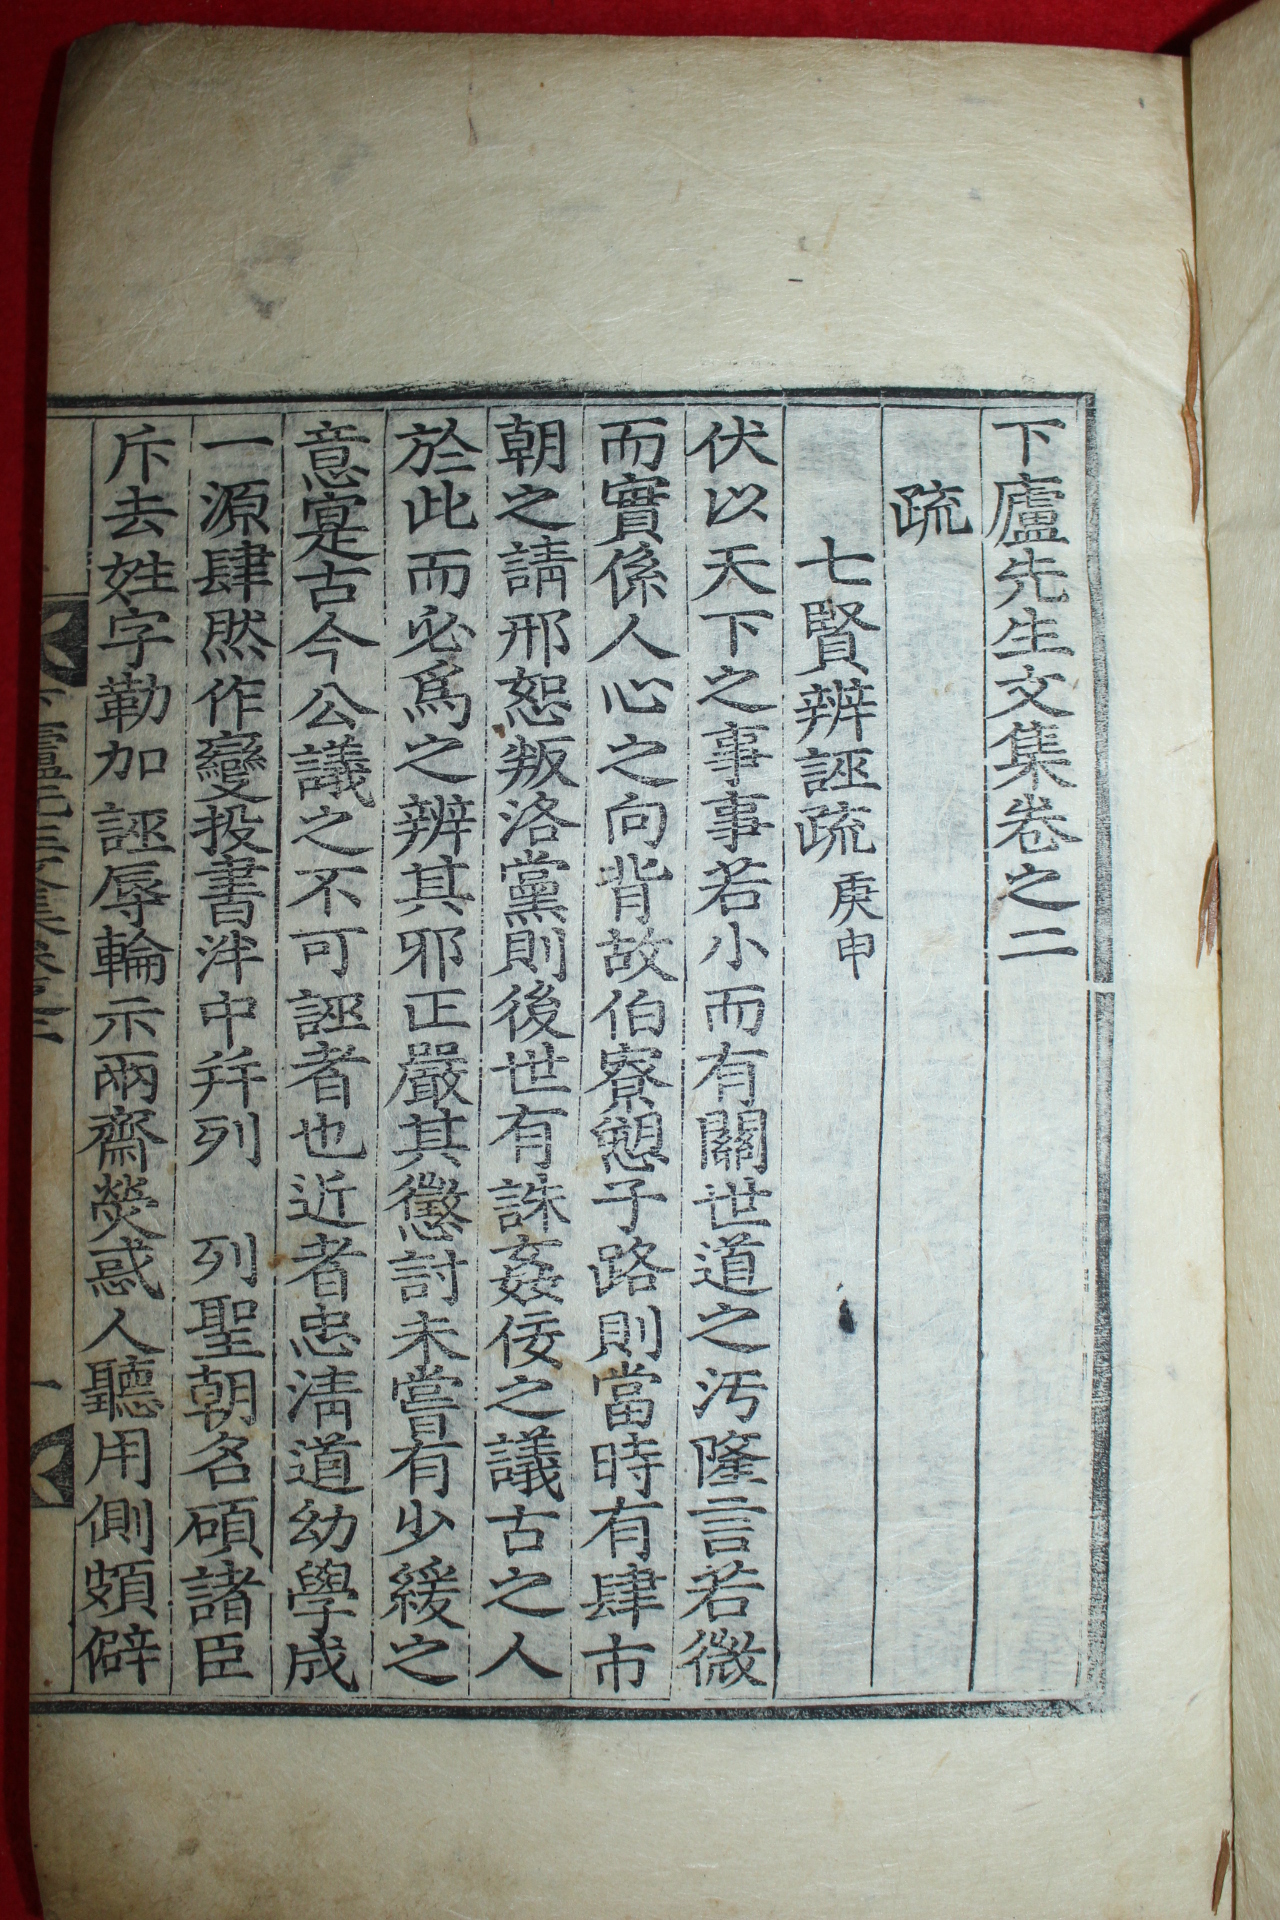 下廬先生文集卷之二
疏
七賢辨誣疏 庚申
伏以天下之事事若小而有關世道之汚隆言若微
而實係人心之向背故伯寮愬子路則當時有肆市
朝之請邢恕叛洛黨則後世有誅姦佞之議古之人
於此而必爲之辨其邪正嚴其懲討未嘗有少緩之
意寔古今公議之不可誣者也近者忠淸道幼學成
一源肆然作變投書泮中幷列 列聖朝名碩諸臣
斥去姓字勒加誣辱輪示兩齋熒惑人聽用側頗僻
下廬先生文集卷之二 一